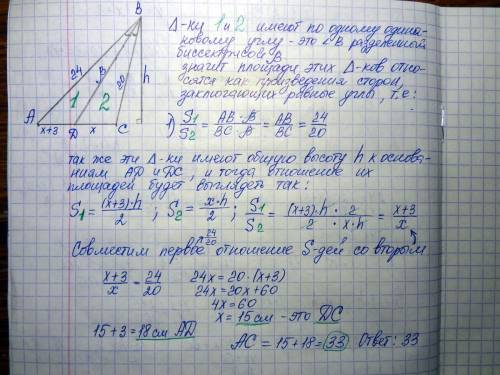 B
Δ-ки 1 и 2 имеют по одному одина-
ковому углу - это ∠B разделенный
биссектрисой β
значит площади этих Δ-ков отно-
сятся как произведения сторон,
заключающих равные углы, т.е:
24
β
20
h
1
2
A
x+3
D
x
C
1) S1/S2 = AB·β/BC·β = AB/BC = 24/20
так же эти Δ-ки имеют общую высоту h к основа-
ниям AD и DC, и тогда отношение их
площадей будет выглядеть так:
S1 = (x+3)·h/2 ; S2 = x·h/2 ; S1/S2 = (x+3)·h/2 · 2/x·h = x+3/x
24/20
Совместим первое отношение S-дей со вторым
x+3/x = 24/20
24x = 20·(x+3)
24x = 20x+60
4x = 60
x = 15 см - это DC
15+3 = 18 см AD
AC = 15+18 = 33 Ответ: 33